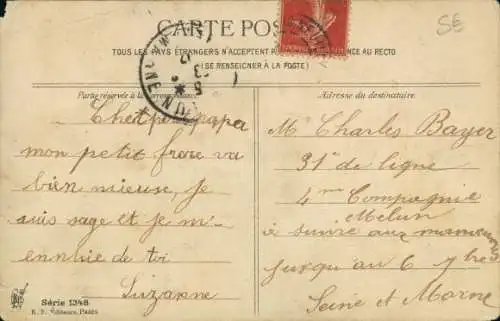 CARTE POS
TOUS LES PAYS ÉTRANGERS N'ACCEPTENT AU RECTO
(SE RENSEIGNER À LA POSTE)
Partie réservée à la correspondance
Adresse du destinataire.
Cher petit papa
mon petit frere va
bien mieuse, je
suis sage et je m'-
ennuie de toi
Suzanne
Mr Charles Bayer
31e de ligne
4me Compagnie
Melun
à suivre aux manœuvres
jusqu'au 6 7bre
Seine et Marne
Série 1348
Éditeurs, PARIS